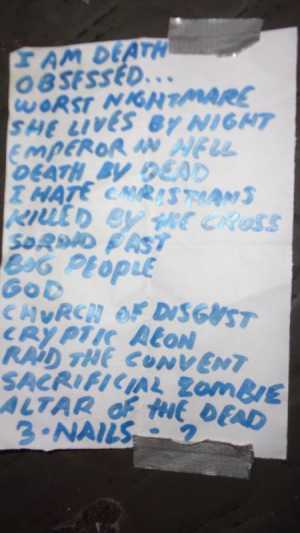 I AM DEATH
OBSESSED...
WORST NIGHTMARE
SHE LIVES BY NIGHT
EMPEROR IN HELL
DEATH BY DEAD
I HATE CHRISTIANS
KILLED BY THE CROSS
SORDID PAST
BOG PEOPLE
GOD
CHURCH OF DISGUST
CRYPTIC AEON
RAID THE CONVENT
SACRIFICIAL ZOMBIE
ALTAR OF THE DEAD
3 · NAILS - ?